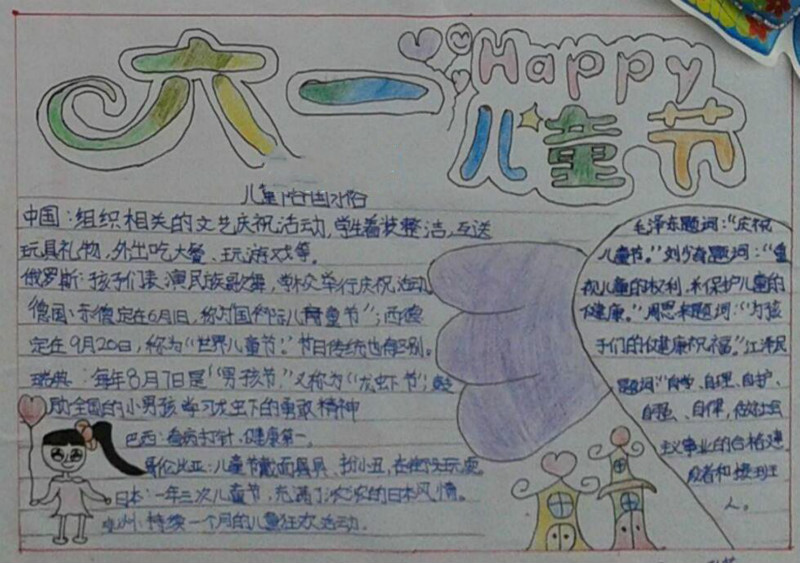 六一
Happy
儿童节
儿童节各国习俗
中国：组织相关的文艺庆祝活动，学生着装整洁，互送
玩具礼物，外出吃大餐、玩游戏等。
俄罗斯：孩子们表演民族歌舞，学校举行庆祝活动
德国：东德定在6月1日，称为"国际儿童节"；西德
定在9月20日，称为"世界儿童节"。节日传统也有区别。
瑞典：每年8月7日是"男孩节"，又称为"龙虾节"；鼓
励全国的小男孩学习龙虾下的勇敢精神
巴西：看病打针，健康第一。
哥伦比亚：儿童节戴面具具、扮小丑，在街头玩耍。
日本：一年三次儿童节，充满了浓浓的日本风情。
非洲：持续一个月的儿童狂欢活动.
毛泽东题词："庆祝
儿童节。"刘少奇题词："重
视儿童的权利，和保护儿童的
健康。"周恩来题词："为孩
子们的健康祝福。"江泽民
题词："自学、自理、自护、
自强、自律，做社会
主义事业的合格建
设者和接班
人。